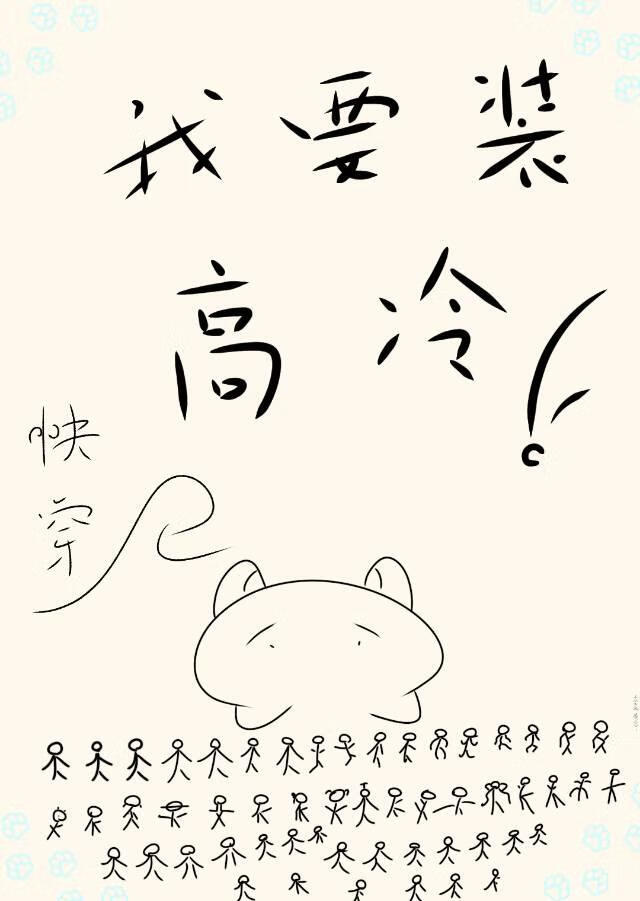 我要装
高冷!
快
穿